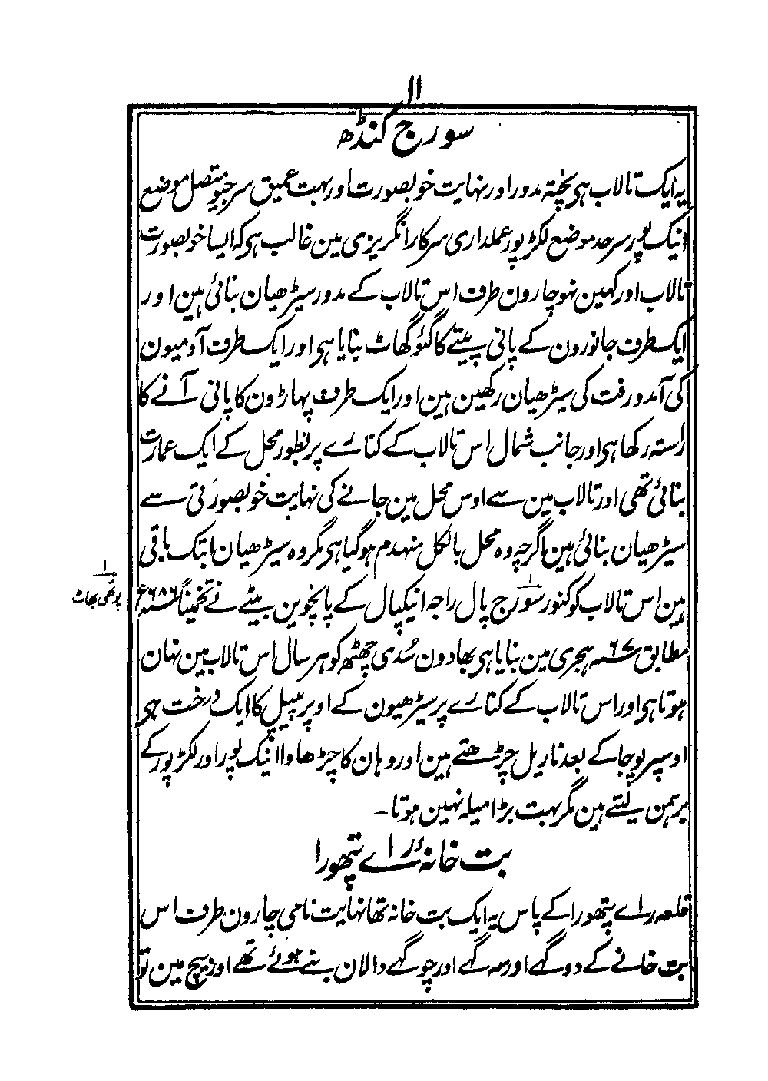 ۱۱
سورج کنڈھ
یہ ایک تالاب ہی پختہ مدور اور نہایت خوبصورت اور بہت عمیق سرحد متصل موضع
انیک پور سرحد موضع لکڑ پور عملداری سرکار انگریزی مین غالب ہی کہ ایسا خوبصورت
تالاب اور کہین نہو چارون طرف اس تالاب کے مدور سیڑھیان بنائی ہین اور
ایک طرف جانورون کے پانی پینے کا گئو گھاٹ بنایا ہی اور ایک طرف آدمیون
کی آمد و رفت کی سیڑھیان رکھین ہین اور ایک طرف پہاڑون کا پانی آنے کا
راستہ رکھا ہی اور جانب شمال اس تالاب کے کنارے پر بطور محل کے ایک عمارت
بنائی تھی اور تالاب مین سے اوس محل مین جانے کی نہایت خوبصورتی سے
سیڑھیان بنائی ہین اگرچہ وہ محل بالکل منہدم ہو گیا ہی مگر وہ سیڑھیان ابتک باقی
ہین اس تالاب کو کنور سورج پال راجہ انیکپال کے پانچوین بیٹے نے تخمیناً ۶۸۶ء
۱ پوتھی بھاٹ
مطابق ۶۷ ہجری مین بنایا ہی بھادون سُدی چھٹھ کو ہر سال اس تالاب مین نہان
ہوتا ہی اور اس تالاب کے کنارے پر سیڑھیون کے اوپر پیپل کا ایک درخت ہی
اوسپر پوجا کے بعد ناریل چڑھتے ہین اور وہان کا چڑھاوا انیک پور اور لکڑ پور کے
برہمن لیتے ہین مگر بہت بڑا میلہ نہین ہوتا۔
بت خانۂ راے پتھورا
قلعہ راے پتھورا کے پاس یہ ایک بت خانہ تھا نہایت نامی چارون طرف اس
بت خانے کے دو گہے اور سہ گہے اور چو گہے دالان بنے ہوئے تھے اور بیچ مین تو